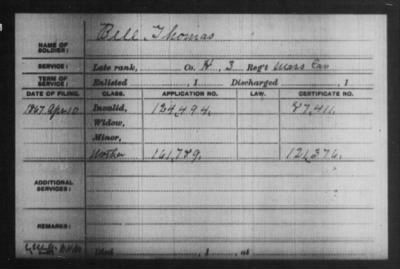 NAME OF SOLDIER: Bell, Thomas
SERVICE: Late rank, Co. H, 3 Reg't Mass Cav
TERM OF SERVICE: Enlisted , 1 Discharged , 1
DATE OF FILING. CLASS. APPLICATION NO. LAW. CERTIFICATE NO.
1867 Apr 10 Invalid, 134,494. 87,411.
Widow,
Minor,
Mother 161,789. 121,376.
ADDITIONAL SERVICES:
REMARKS:
Died , 1 , at